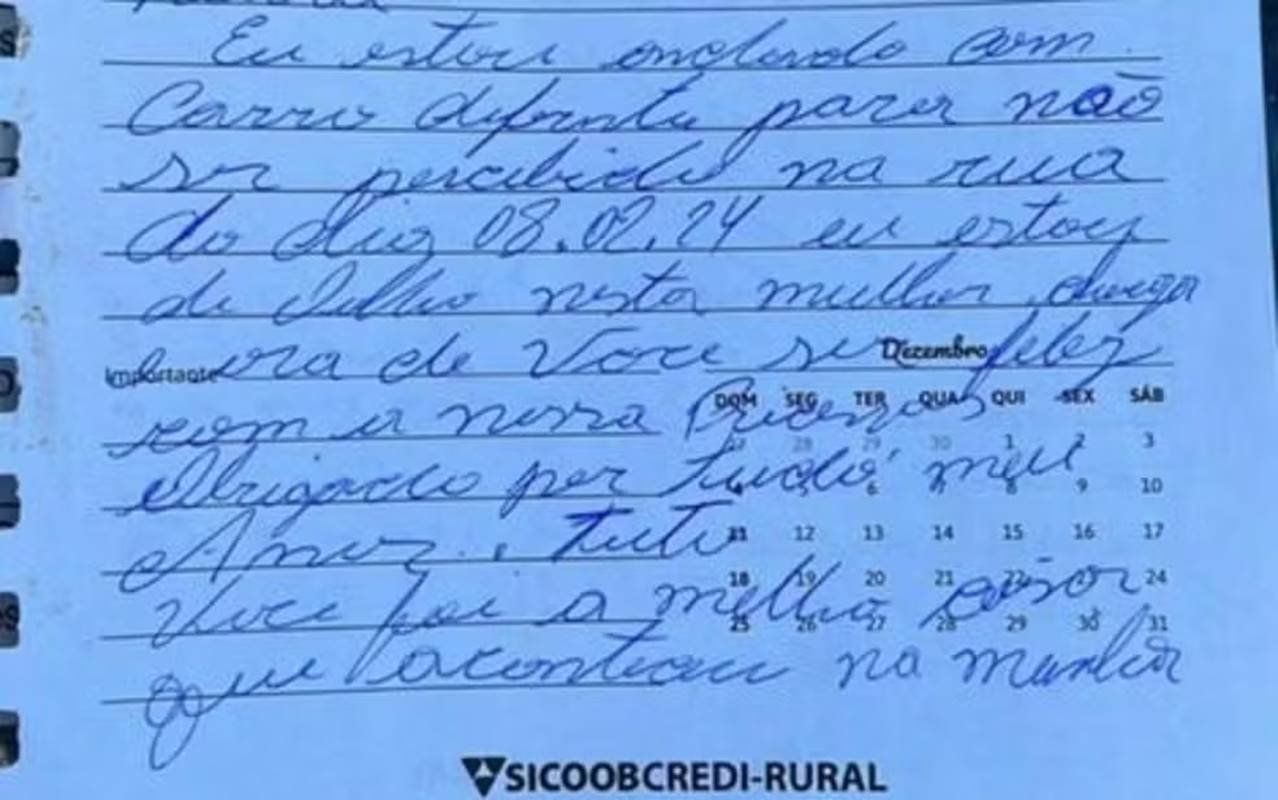 Eu estou andando com
Carro difernte para não
ser percebido na rua
do dia 08.02.24 eu estou
de Olho nesta mulher, chega
ora de Voce ser feliz
com a nossa Princesa
Obrigado por tudo meu
Amor.
Voce foi a melhor coisa
que aconteceu na minha
Importante
Dezembro
DOM SEG TER QUA QUI SEX SÁB
28 29 30 1 2 3
6 8 9 10
11 12 13 14 15 16 17
18 19 20 21 24
25 26 27 28 29 30 31
SICOOBCREDI-RURAL